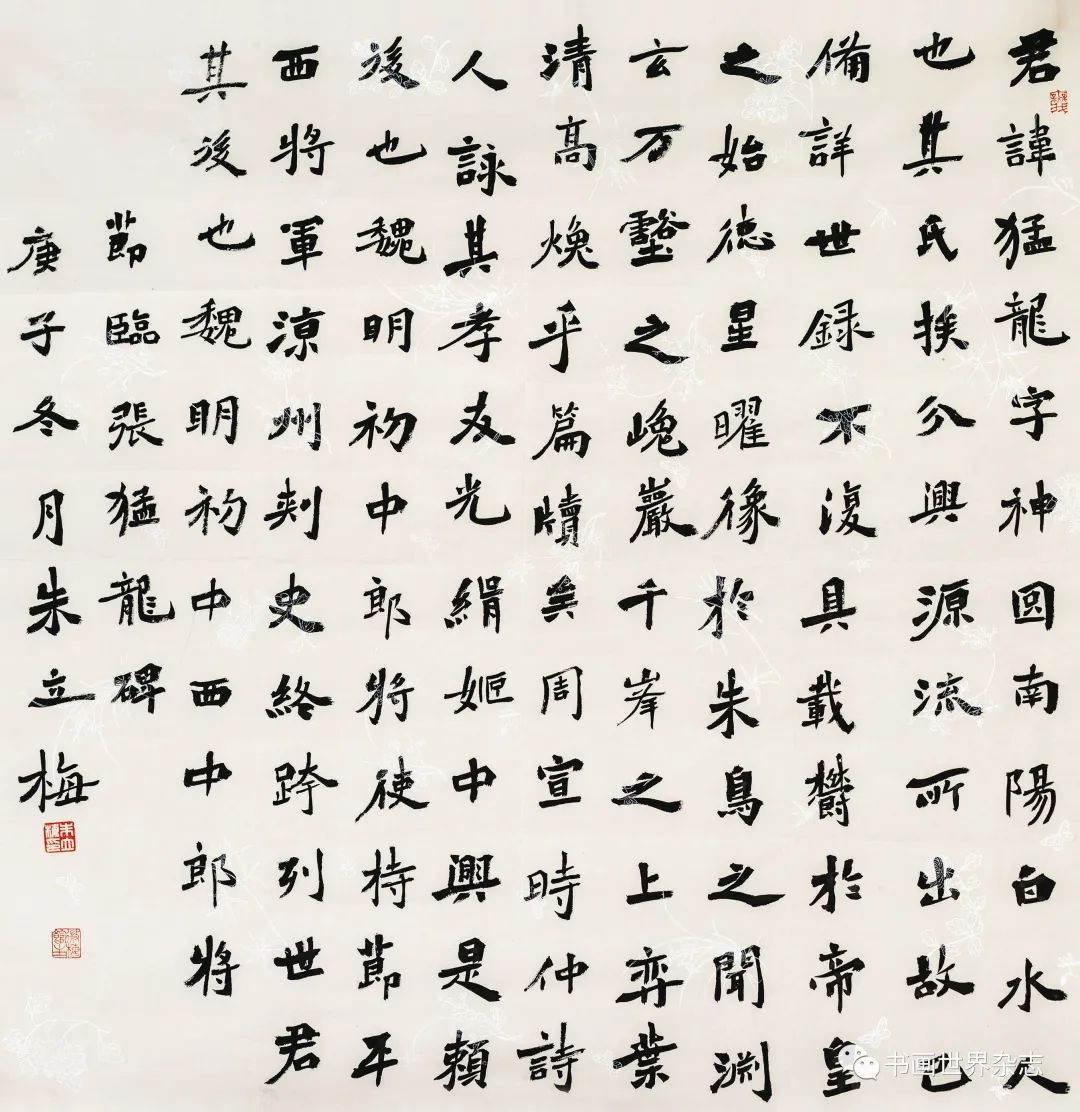 君諱猛龍字神囧南陽白水人
也其氏族分興源流所出故已
備詳世録不復具載欝於帝皇
之始德星曜像於朱鳥之聞淵
玄万壑之巉巖千峯之上弈葉
清高煥乎篇牘矣周宣時仲詩
人詠其孝友光緝姬中興是賴
後也魏明初中郎將使持節平
西將軍涼州刾史終跨列世君
其後也魏明初中西中郎將
節臨張猛龍碑
庚子冬月朱立梅
书画世界杂志